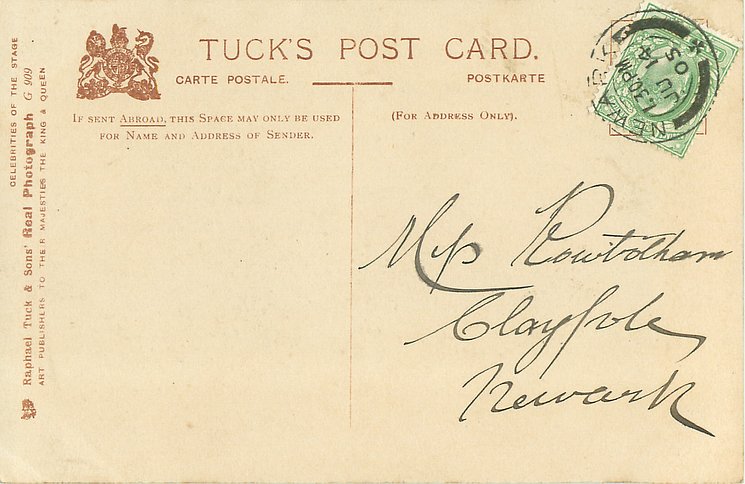 TUCK'S POST CARD.
CARTE POSTALE.
POSTKARTE
IF SENT ABROAD, THIS SPACE MAY ONLY BE USED
FOR NAME AND ADDRESS OF SENDER.
(FOR ADDRESS ONLY).
CELEBRITIES OF THE STAGE
Raphael Tuck & Sons' Real Photograph G 909
ART PUBLISHERS TO THEIR MAJESTIES THE KING & QUEEN
NEWA
1.30PM
JU 14
05
Claypole
Newark